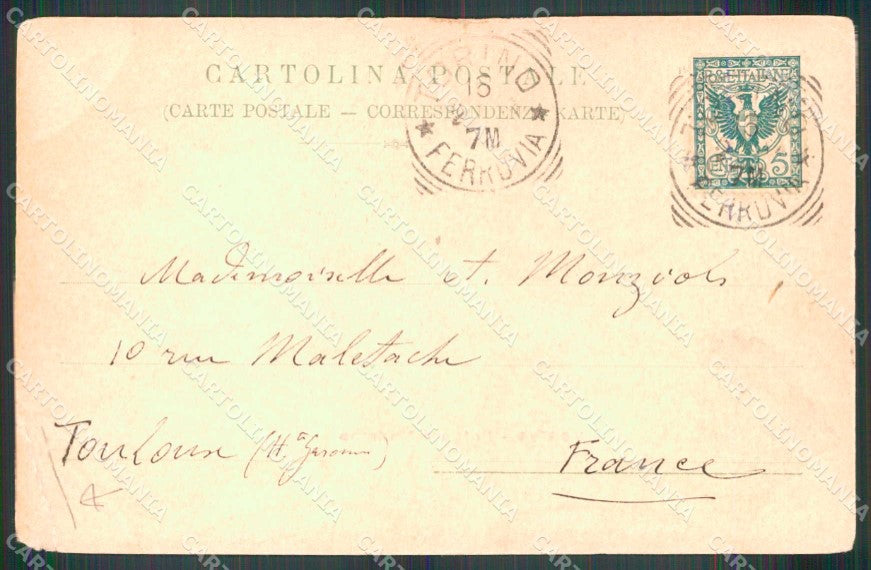 CARTOLINA POSTALE
(CARTE POSTALE — CORRESPONDENZ-KARTE)
TORINO
16
7M
★ FERROVIA ★
5
7M
FERROVIA
Mademoiselle
10 rue Maletache
Toulouse (Hte Garonne)
France
CARTOLINOMANIA